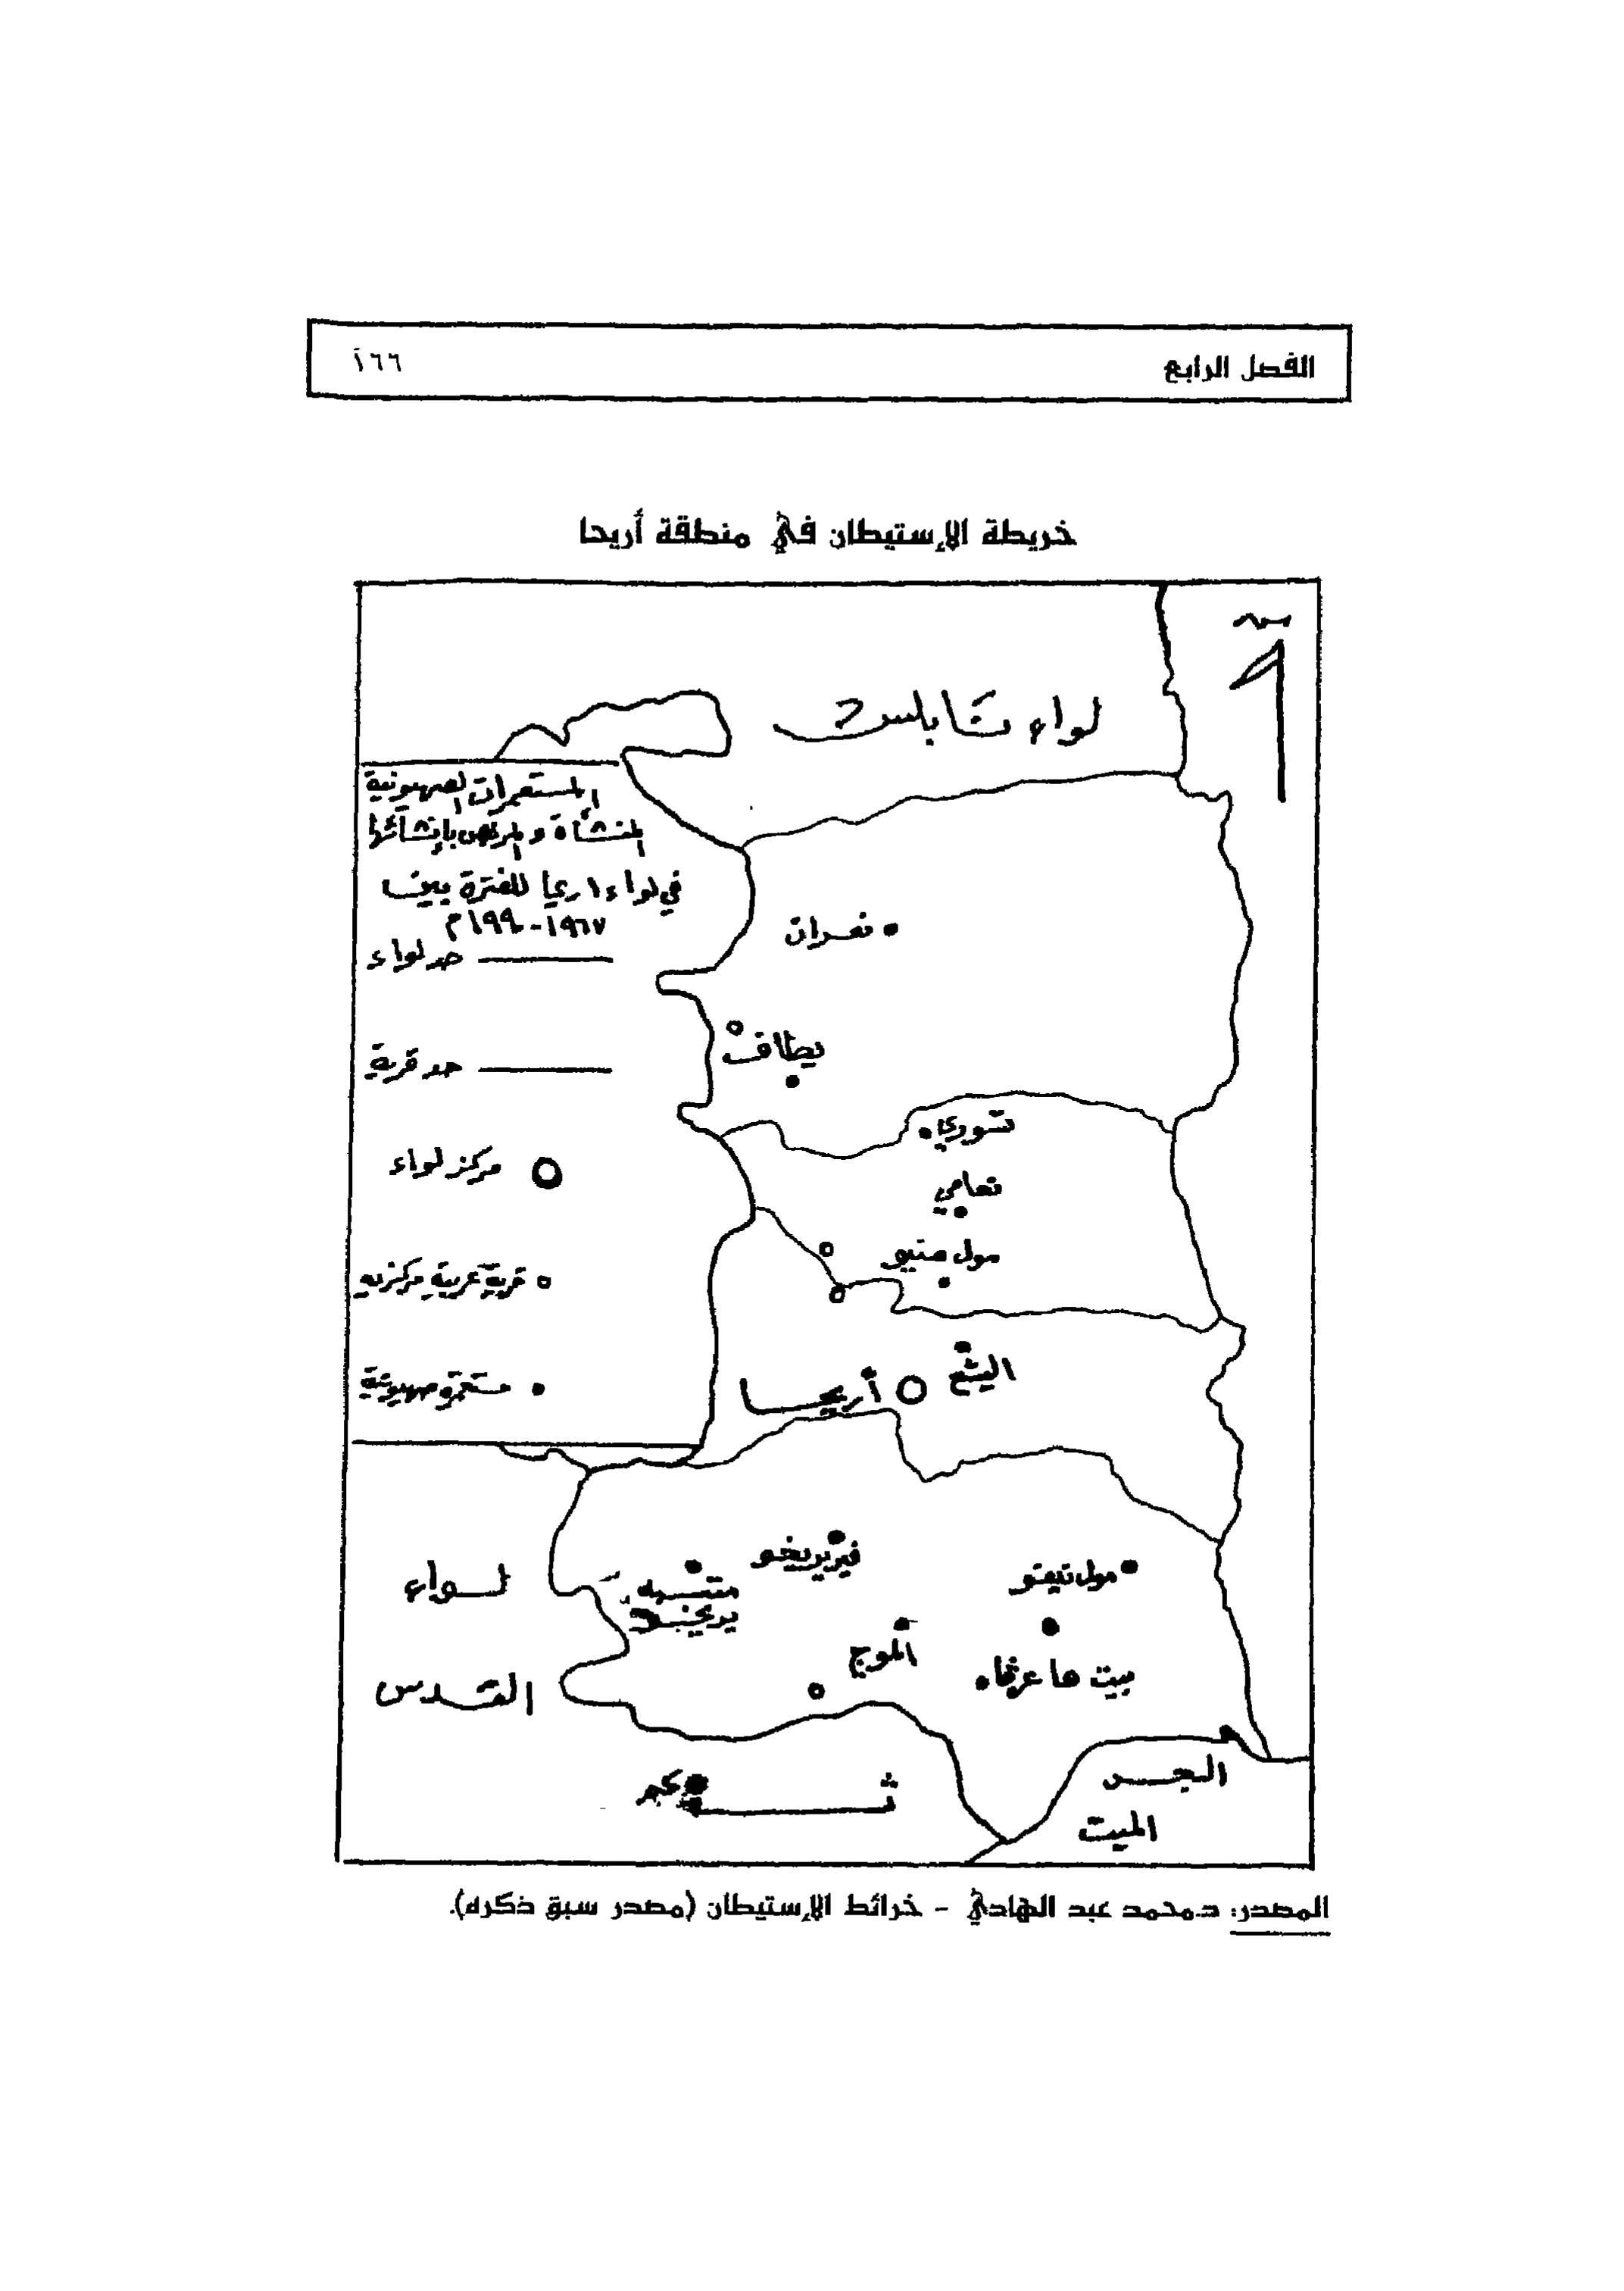 الفصل الرابع
١٦٦أ
خريطة الإستيطان في منطقة أريحا
لواء نابلس
المستعمرات الصهيونية
المنشأة والمرخص بإنشائها
في لواء اريحا للفترة بين
١٩٦٧-١٩٩٠م
حد لواء
حد قرية
مركز لواء
قرية عربية مركزية
مستعمرة صهيونية
نعران
يطاف
نعامي
اليشع
أريحا
فيريد يريحو
متسبه
يريحو
الموج
بيت هاعرفاه
لواء
القدس
البحر
الميت
المصدر: د.محمد عبد الهادي - خرائط الإستيطان (مصدر سبق ذكره).